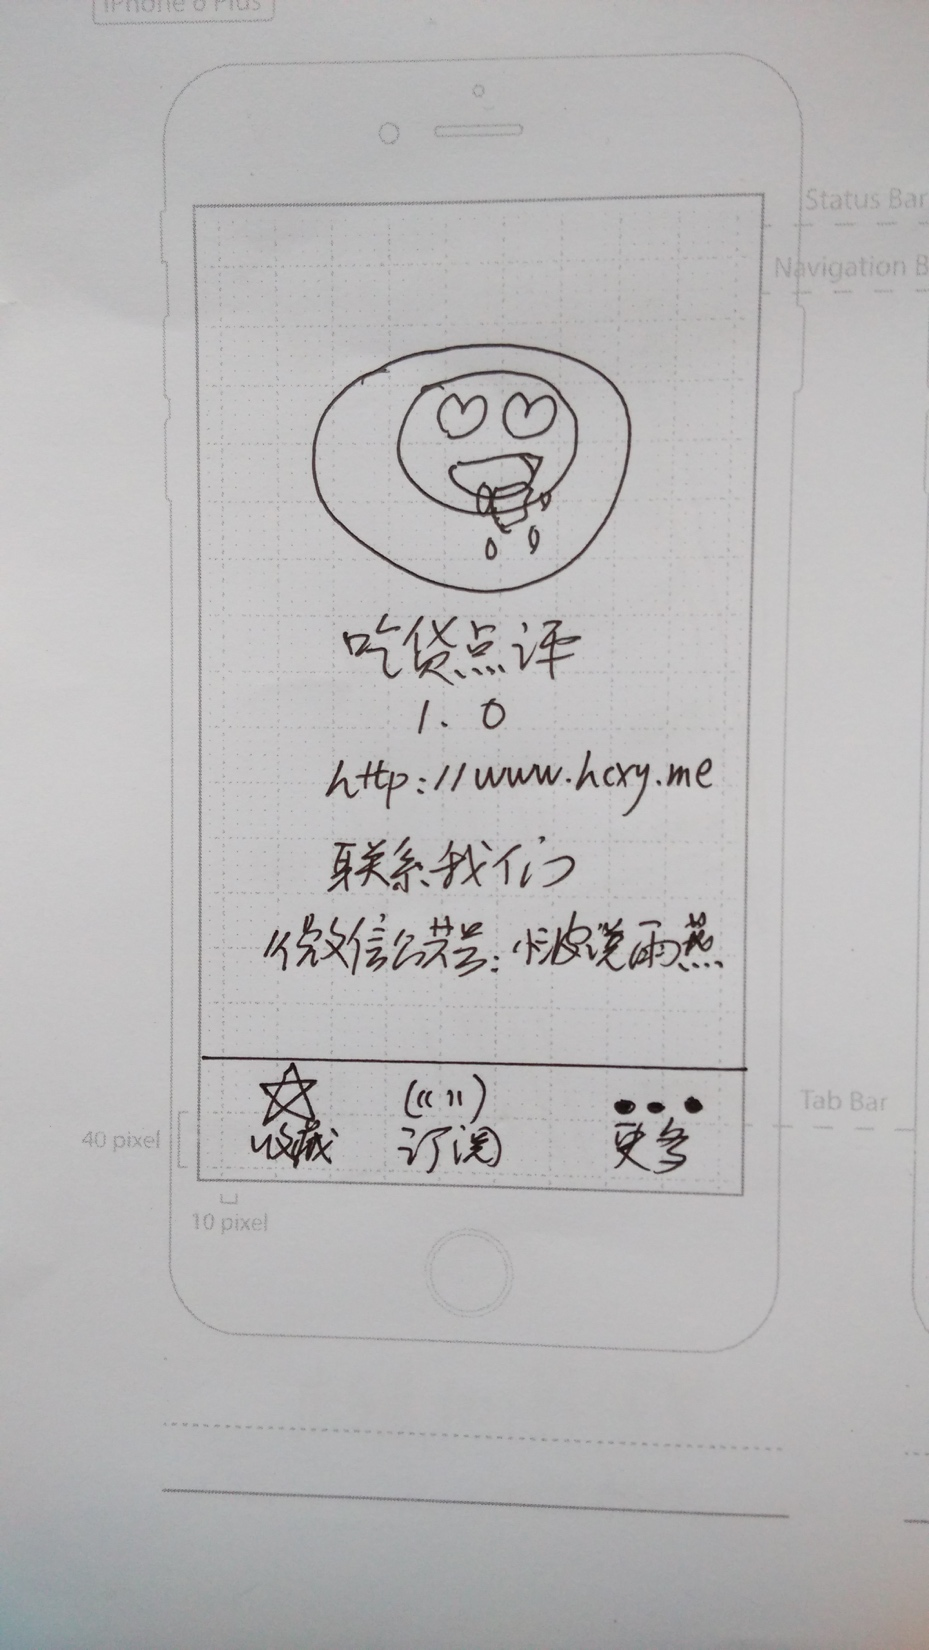 iPhone 6 Plus
Status Bar
Navigation B
吃货点评
1.0
http://www.hcxy.me
联系我们
微信公共号：说雨燕
Tab Bar
收藏 订阅 更多
40 pixel
10 pixel